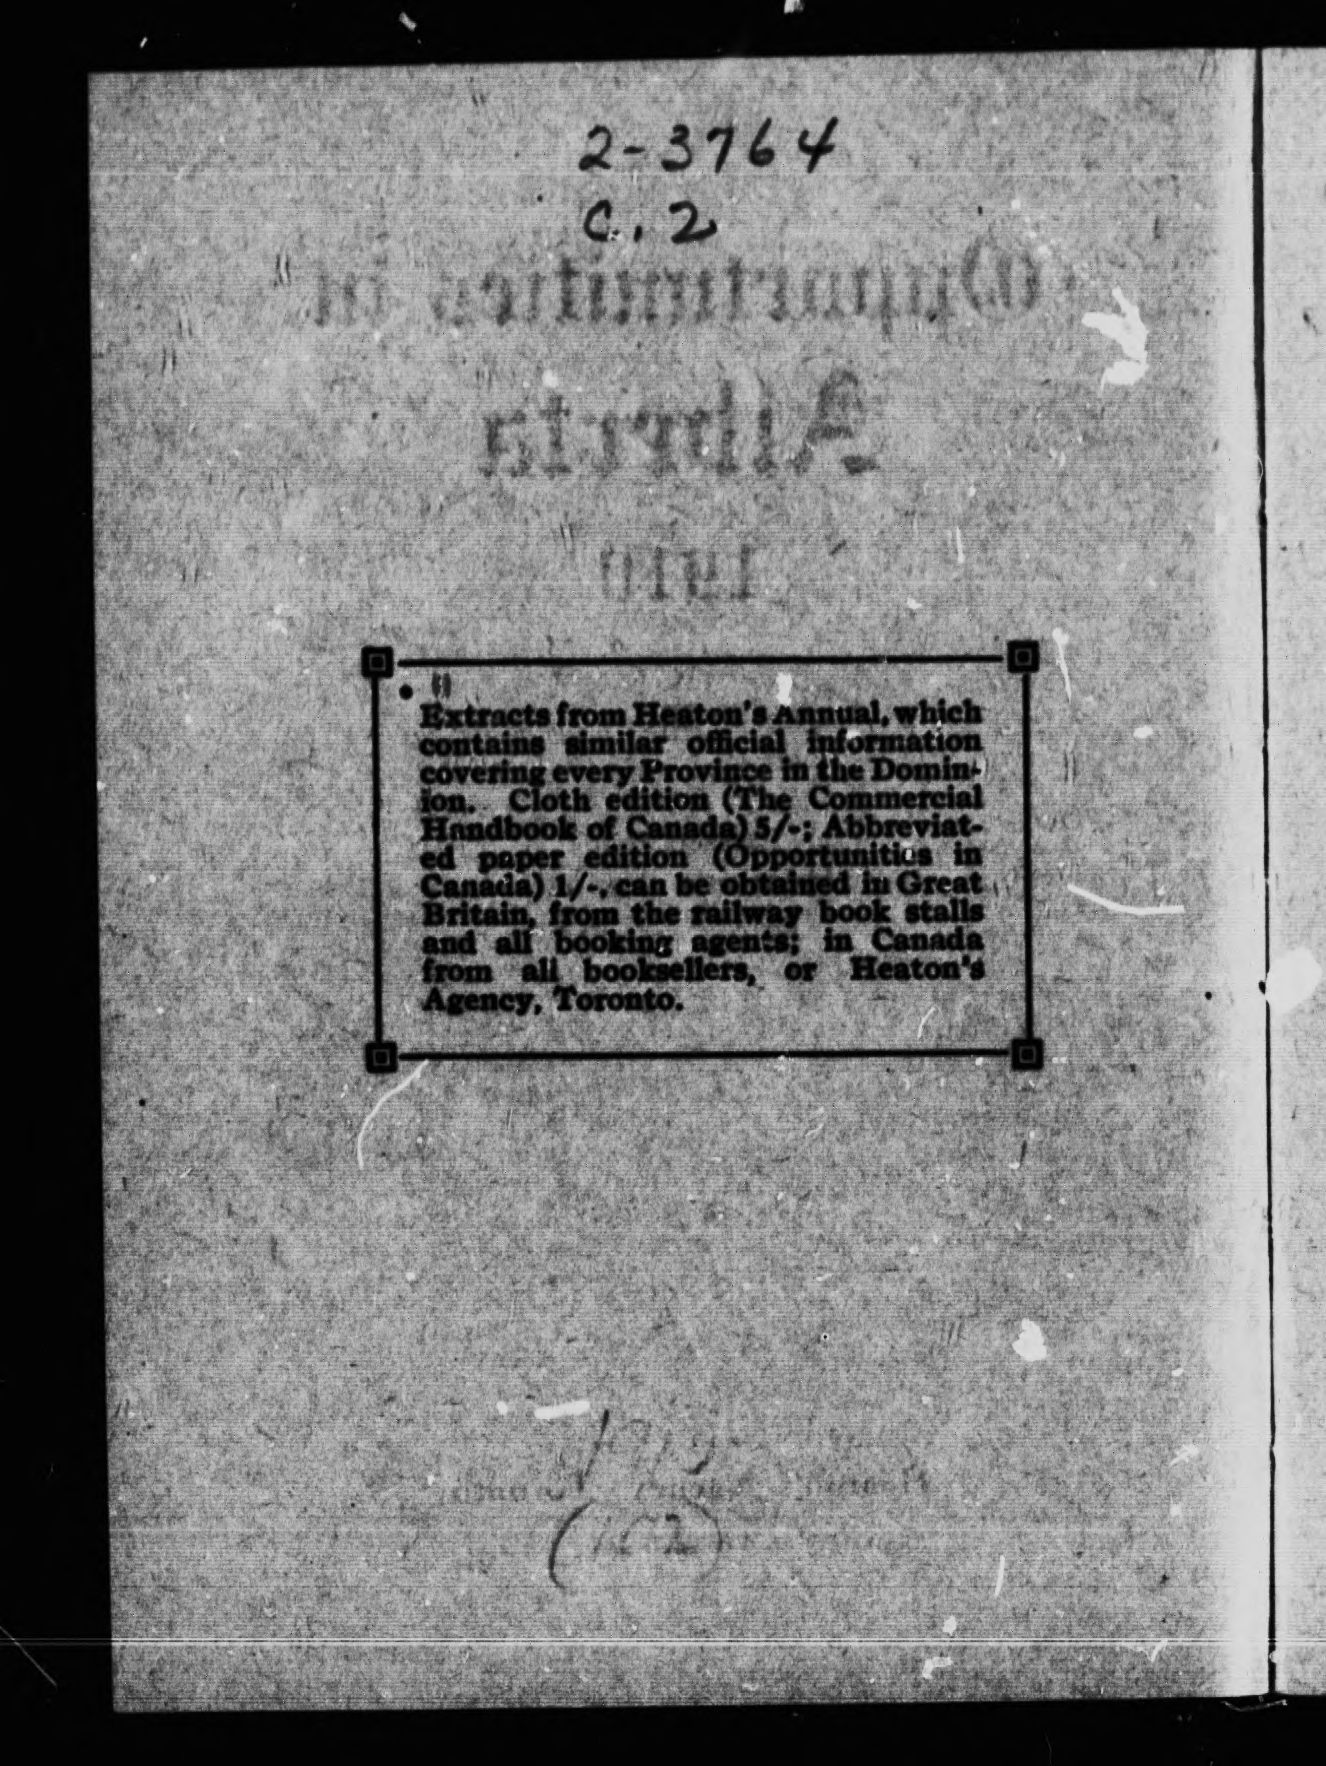 2-3764
C. 2
Opportunities in
Alberta
1910
Extracts from Heaton's Annual, which
contains similar official information
covering every Province in the Domin-
ion. Cloth edition (The Commercial
Handbook of Canada) 5/-; Abbreviat-
ed paper edition (Opportunities in
Canada) 1/-. can be obtained in Great
Britain, from the railway book stalls
and all booking agents; in Canada
from all booksellers, or Heaton's
Agency, Toronto.